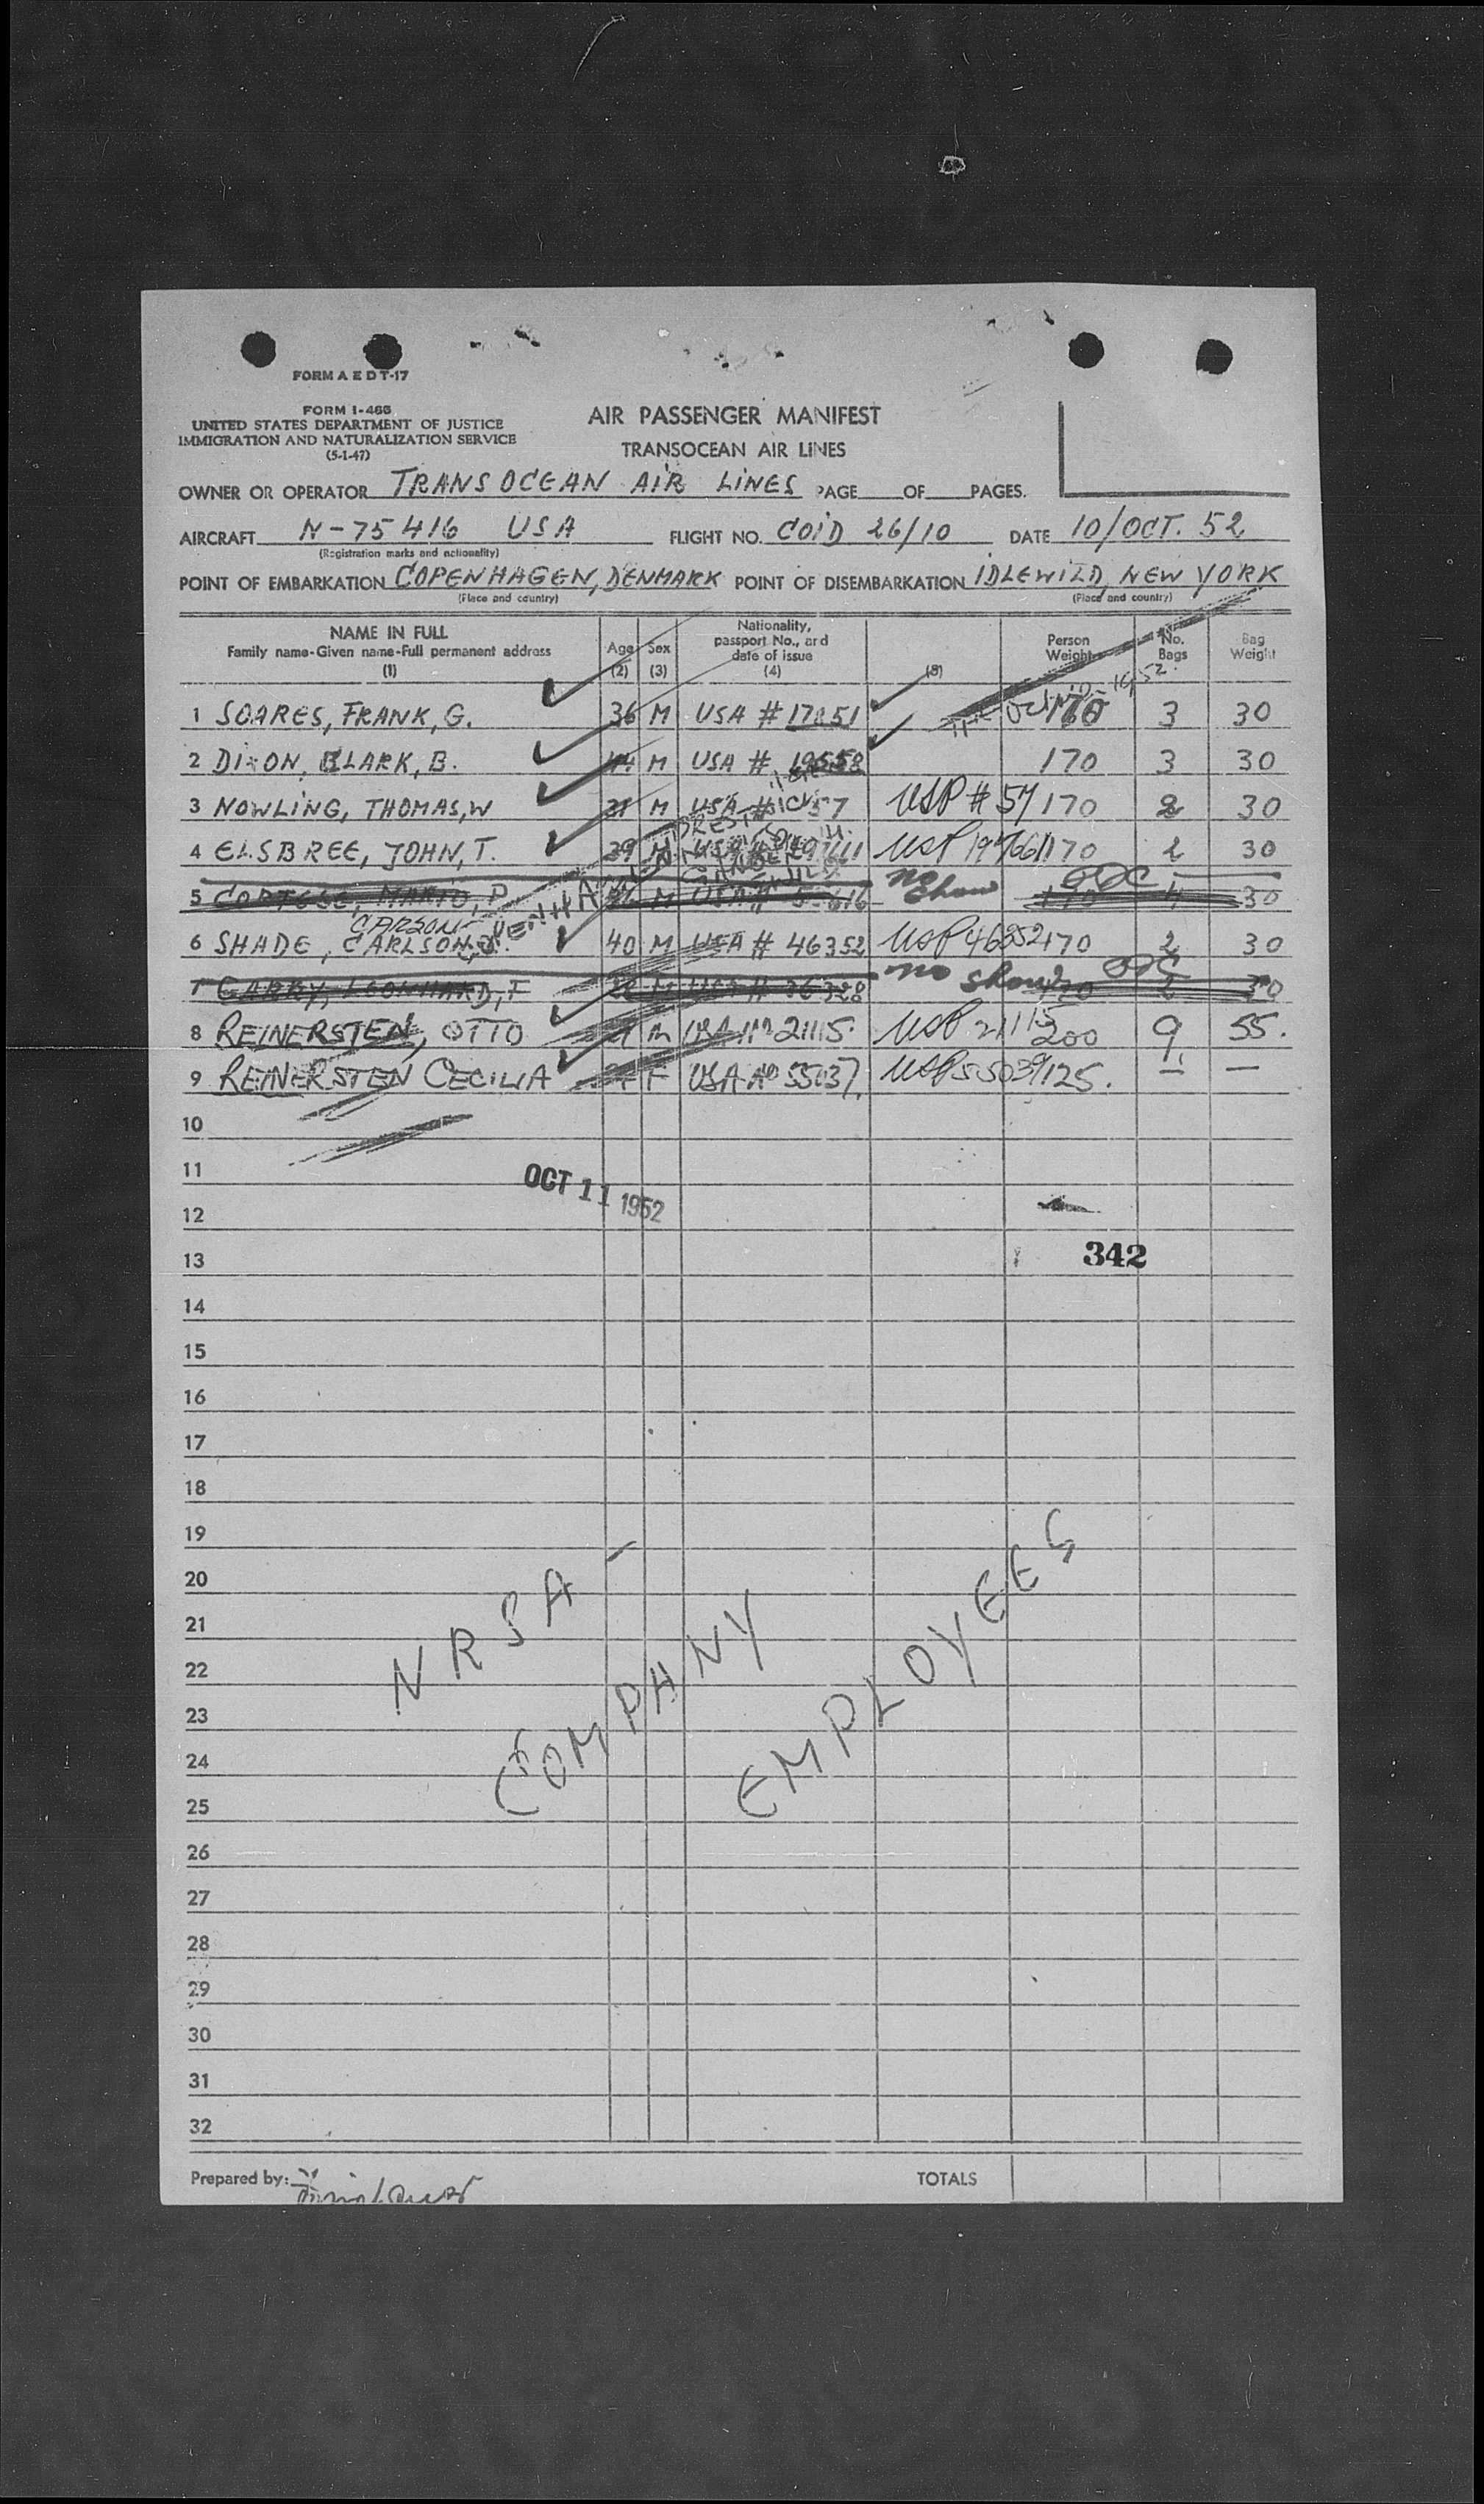 FORM A E D T-17
FORM I-466
UNITED STATES DEPARTMENT OF JUSTICE
IMMIGRATION AND NATURALIZATION SERVICE
(5-1-47)
AIR PASSENGER MANIFEST
TRANSOCEAN AIR LINES
OWNER OR OPERATOR TRANSOCEAN AIR LINES PAGE OF PAGES.
AIRCRAFT N-75416 USA FLIGHT NO. COID 26/10 DATE 10/OCT. 52
(Registration marks and nationality)
POINT OF EMBARKATION COPENHAGEN, DENMARK POINT OF DISEMBARKATION IDLEWILD, NEW YORK
(Place and country) (Place and country)
NAME IN FULL
Family name-Given name-Full permanent address
(1)
Age
(2)
Sex
(3)
Nationality,
passport No., and
date of issue
(4)
(5)
Person
Weight
No.
Bags
Bag
Weight
1 SOARES, FRANK, G. 36 M USA # 3 30
2 DIXON, CLARK, B. 44 M USA # 19558 170 3 30
3 NOWLING, THOMAS, W M USA # 57 USP # 57 170 2 30
4 ELSBREE, JOHN, T. 39 M USP 170 2 30
5 M USA # no show 4 30
CARSON
6 SHADE, CARLSON, 40 M USA # 46352 USP 46352 170 2 30
7 GARRY, LEONHARD, F M USA # 36328 no show 2 30
8 REINERSTEN, OTTO M USA No 21115. USP 21115 200 9 55.
9 REINERSTEN CECILIA F USA No 55037. USP 55037 125. — —
10
11
OCT 11 1952
12
342
13
14
15
16
17
18
19
20
21
22
23
24
25
26
27
28
29
30
31
32
NRSA -
COMPANY
EMPLOYEES
Prepared by: TOTALS